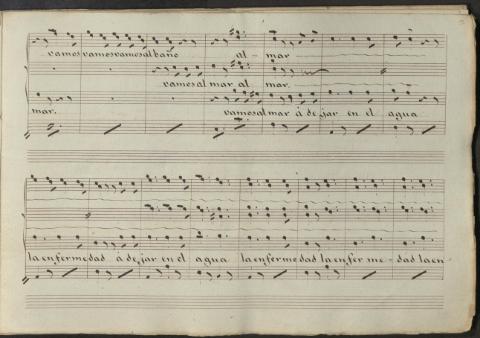 vamos vamos vamos al baño al - mar
vamos al mar al mar.
mar. vamos al mar á dejar en el agua
la enfermedad á dejar en el agua la enfermedad la enferme - dad la en